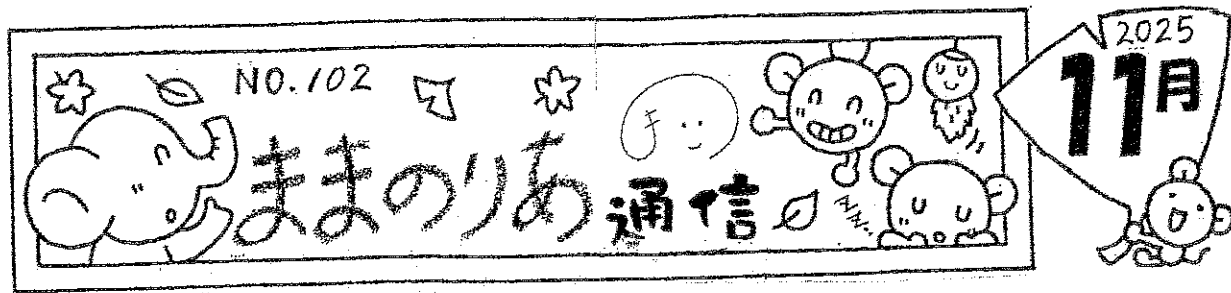 NO.102
ままのりあ通信
2025
11月